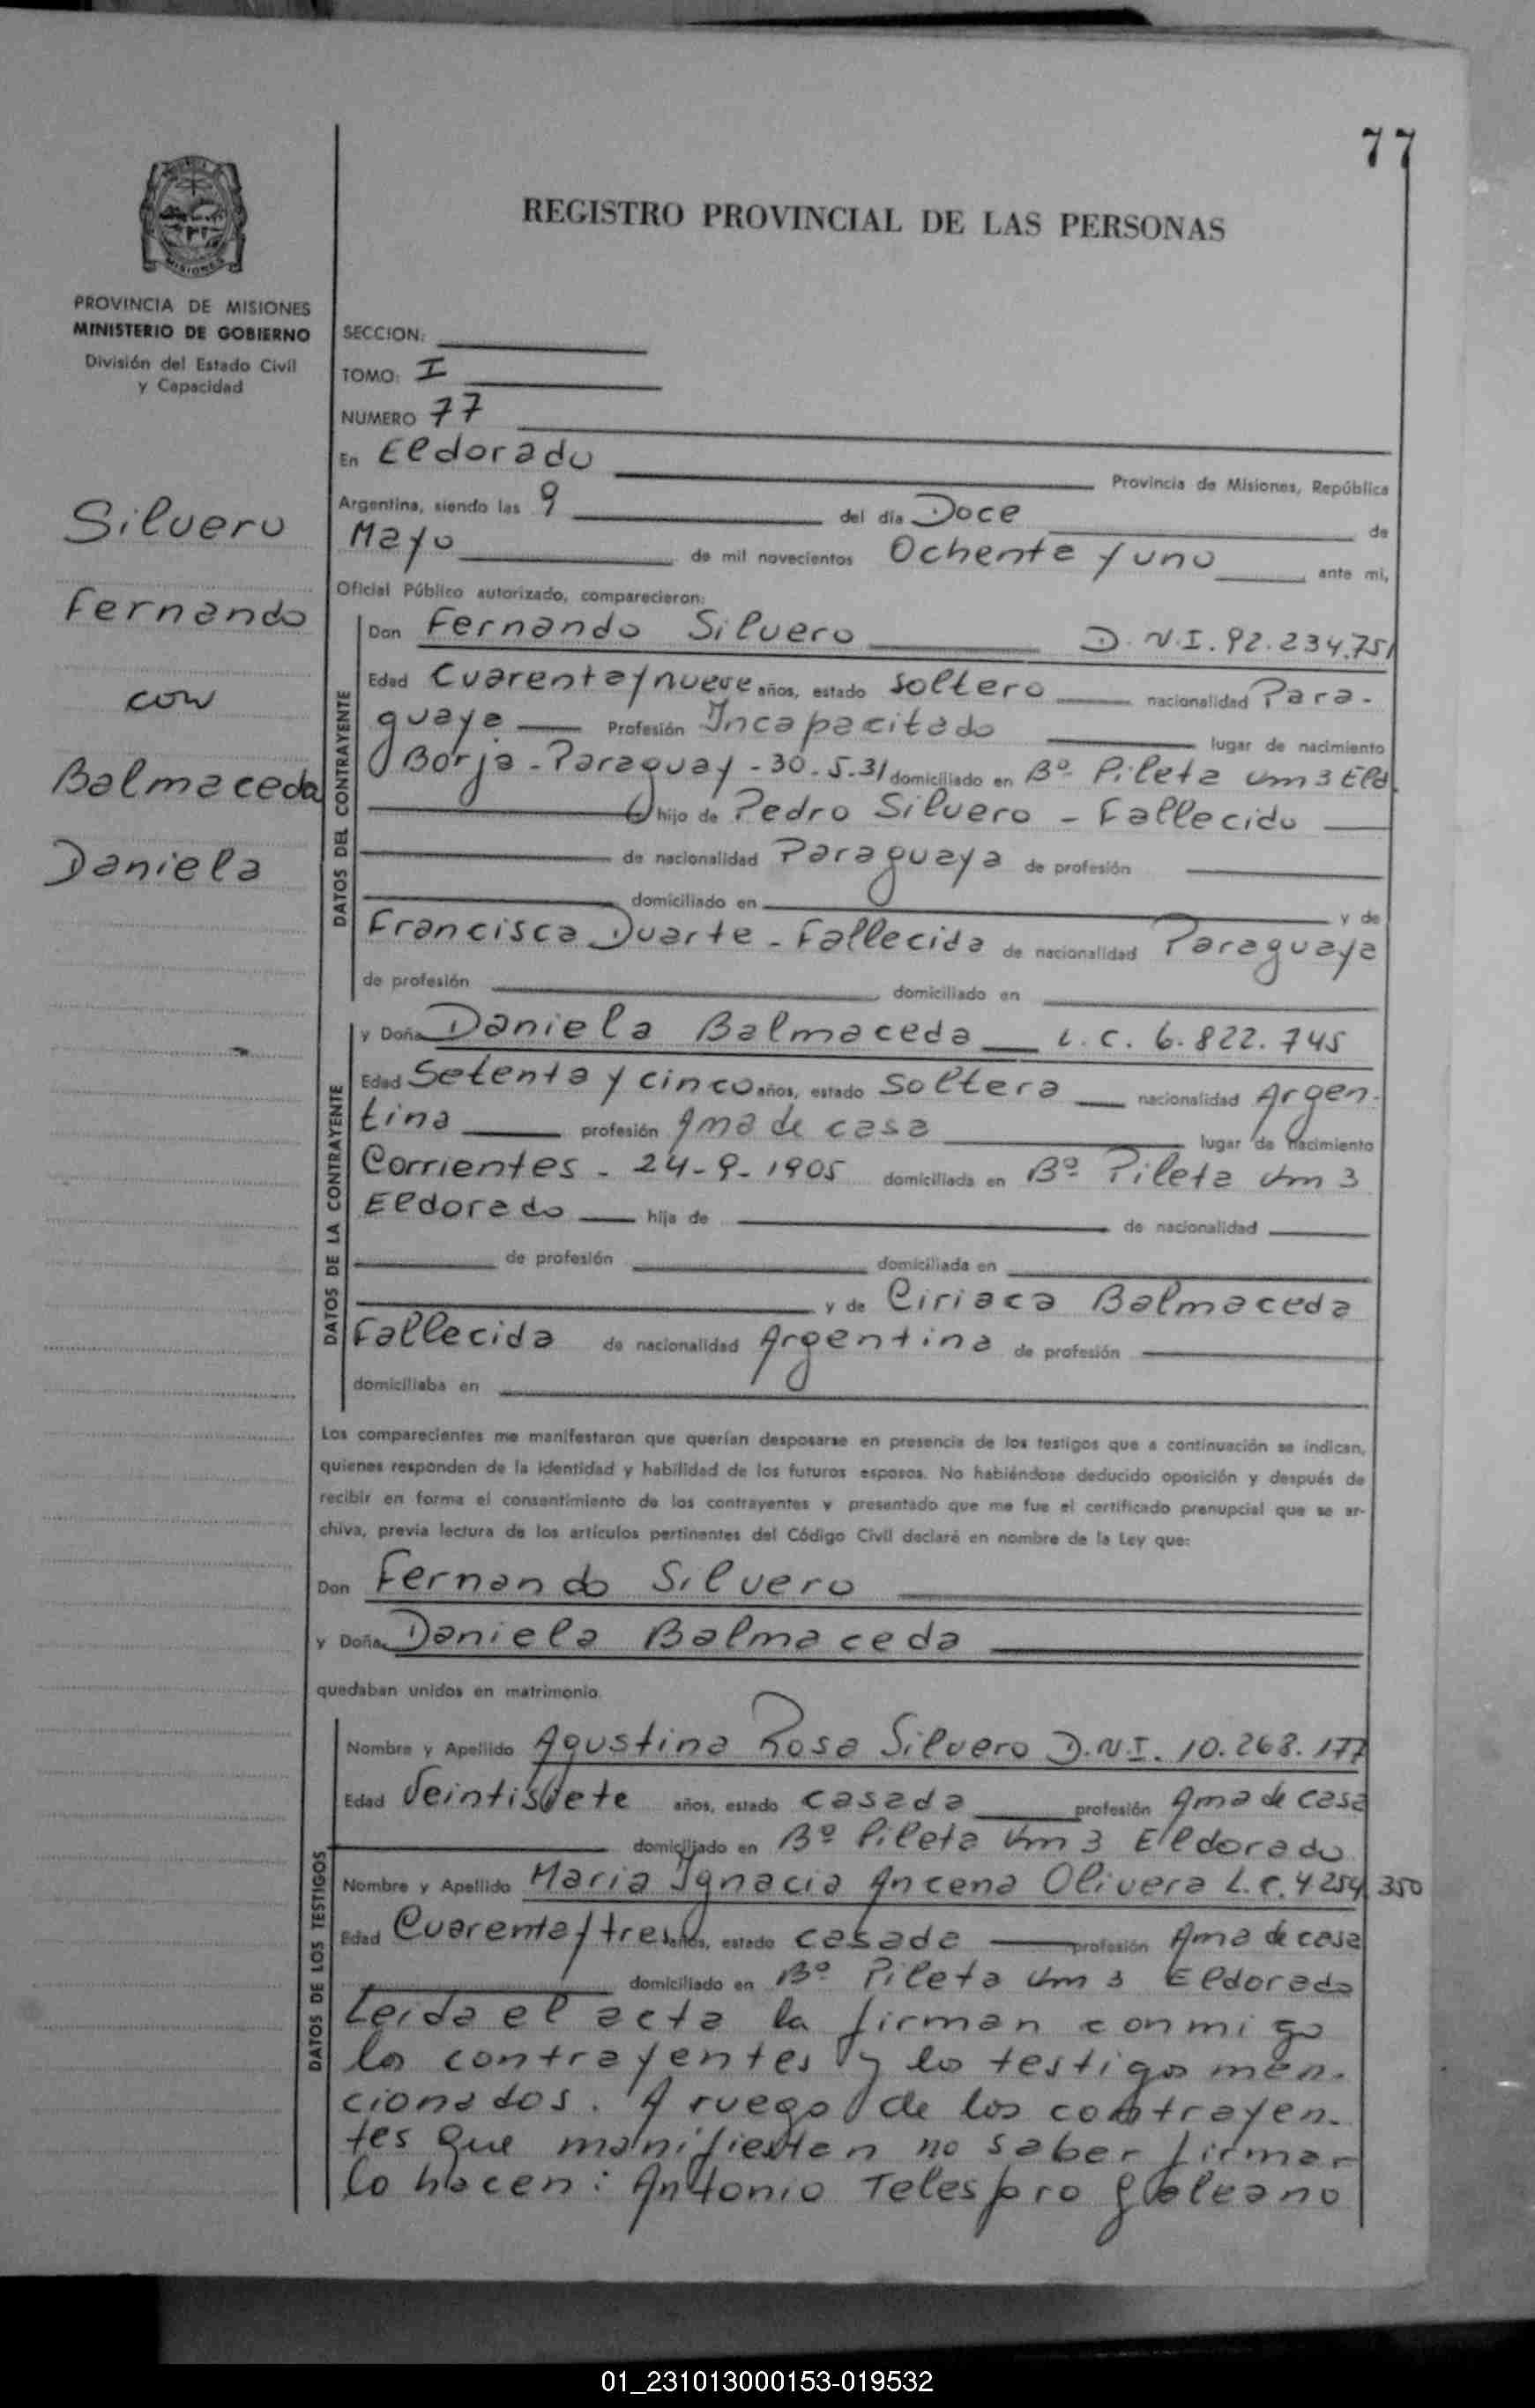 77
REGISTRO PROVINCIAL DE LAS PERSONAS
MISIONES
PROVINCIA DE MISIONES
MINISTERIO DE GOBIERNO
División del Estado Civil
y Capacidad
Silvero
Fernando
con
Balmaceda
Daniela
SECCION:
TOMO: I
NUMERO 77
En Eldorado Provincia de Misiones, República
Argentina, siendo las 9 del día Doce de
Mayo de mil novecientos Ochenta y uno ante mi,
Oficial Público autorizado, comparecieron:
DATOS DEL CONTRAYENTE
Don Fernando Silvero D.N.I. 92.234.751
Edad Cuarenta y nueve años, estado soltero nacionalidad Para-
guaya Profesión Incapacitado lugar de nacimiento
Borja - Paraguay - 30-5-31 domiciliado en Bº Pileta Km 3 Eld.
hijo de Pedro Silvero - Fallecido
de nacionalidad Paraguaya de profesión
domiciliado en y de
Francisca Duarte - Fallecida de nacionalidad Paraguaya
de profesión domiciliado en
DATOS DE LA CONTRAYENTE
y Doña Daniela Balmaceda L.C. 6.822.745
Edad Setenta y cinco años, estado soltera nacionalidad Argen-
tina profesión Ama de casa lugar de nacimiento
Corrientes - 24-9-1905 domiciliada en Bº Pileta Km 3
Eldorado hija de de nacionalidad
de profesión domiciliada en
y de Ciriaca Balmaceda
Fallecida de nacionalidad Argentina de profesión
domiciliaba en
Los comparecientes me manifestaron que querían desposarse en presencia de los testigos que a continuación se indican,
quienes responden de la identidad y habilidad de los futuros esposos. No habiéndose deducido oposición y después de
recibir en forma el consentimiento de los contrayentes y presentado que me fue el certificado prenupcial que se ar-
chiva, previa lectura de los artículos pertinentes del Código Civil declaré en nombre de la Ley que:
Don Fernando Silvero
y Doña Daniela Balmaceda
quedaban unidos en matrimonio
DATOS DE LOS TESTIGOS
Nombre y Apellido Agustina Rosa Silvero D.N.I. 10.268.177
Edad Veintisiete años, estado casada profesión Ama de casa
domiciliado en Bº Pileta Km 3 Eldorado
Nombre y Apellido Maria Ignacia Ancena Olivera L.C. 4.254.350
Edad Cuarenta y tres años, estado casada profesión Ama de casa
domiciliado en Bº Pileta Km 3 Eldorado
Leida el acta la firman conmigo
los contrayentes y los testigos men-
cionados. A ruego de los contrayen-
tes que manifiestan no saber firmar
lo hacen: Antonio Telesforo Galeano
01_231013000153-019532